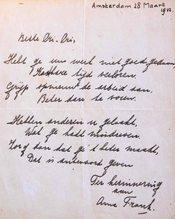 Amsterdam 28 Maart 1942.
Beste Cri-Cri.
Hebt ge uw werk niet goed gedaan,
Kostbare tijd verloren.
Grijp opnieuw de arbeid aan
Beter dan te voren.
Hebben anderen u gelaakt,
Wat ge hadt misdreven.
Zorg dan dat ge 't beter maakt,
Dat is antwoord geven
Ter herinnering
aan
Anne Frank.